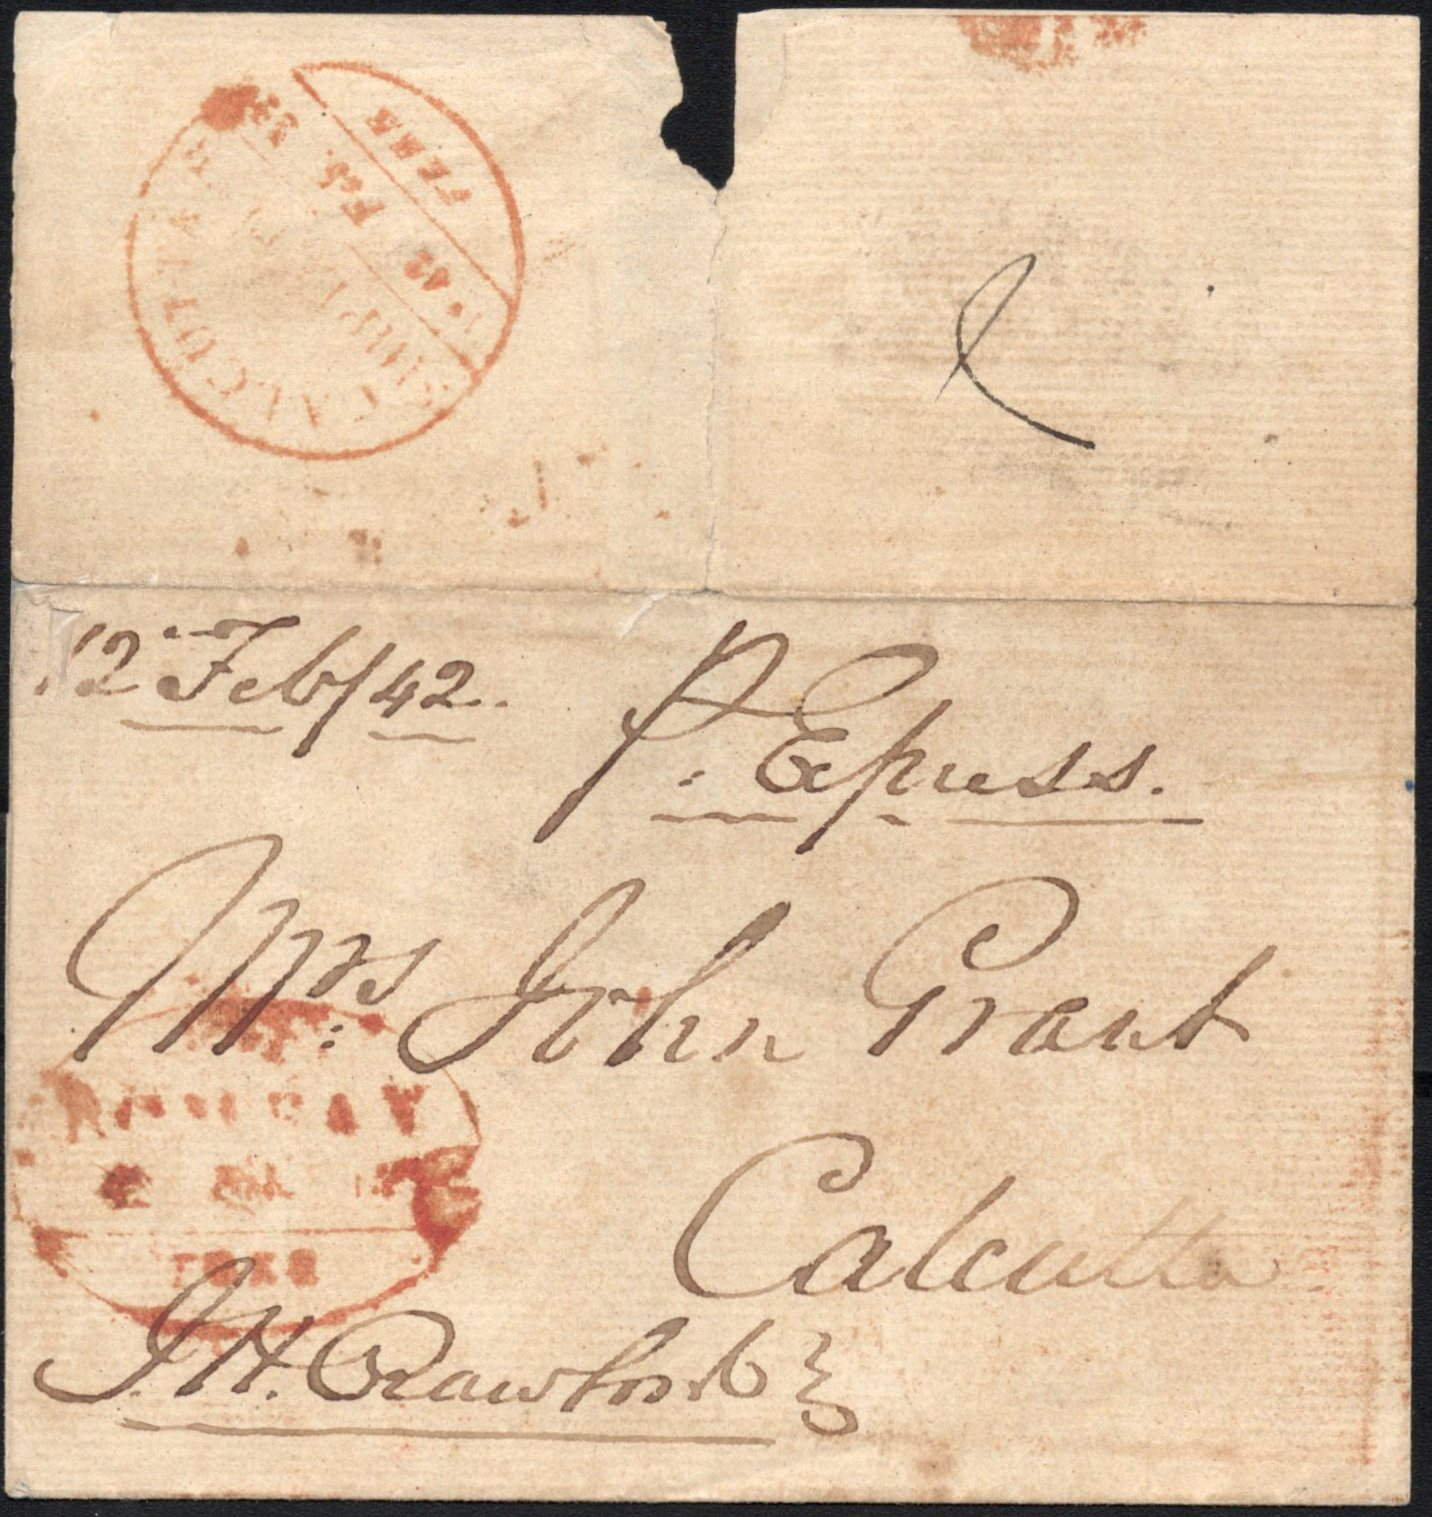 CALCUTTA
SHIPT
42 Feb. 23
12 Feb/42.
P. Express.
Mrs: John Grant
Calcutta
BOMBAY
J. H. Crawford